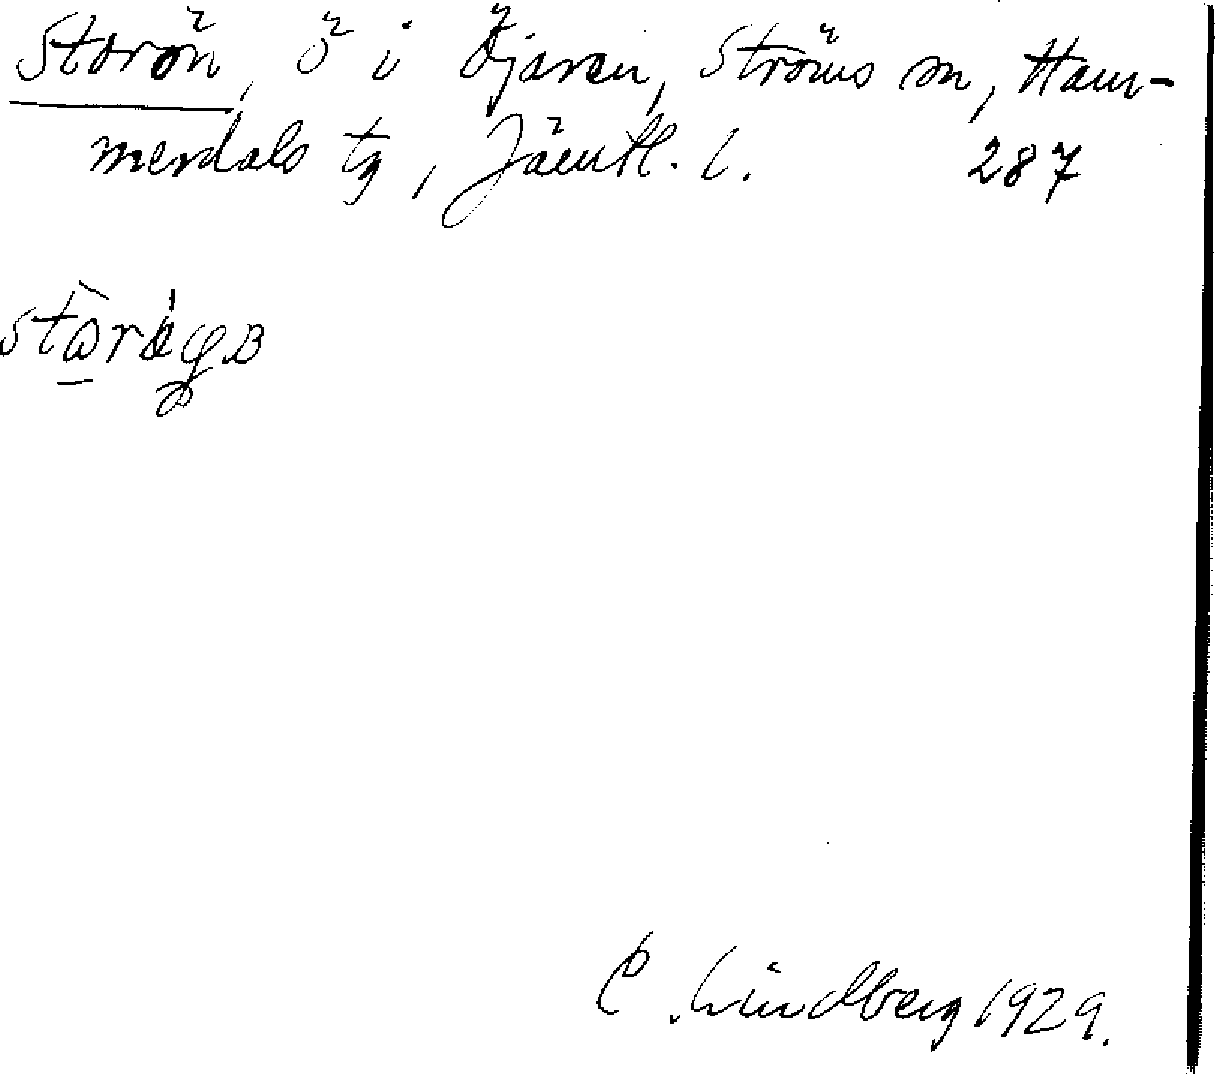 Storön, ö i Öjaren, Ströms sn, Ham-
merdals tg, Jämtl. l. 287
C. Lindberg 1929.